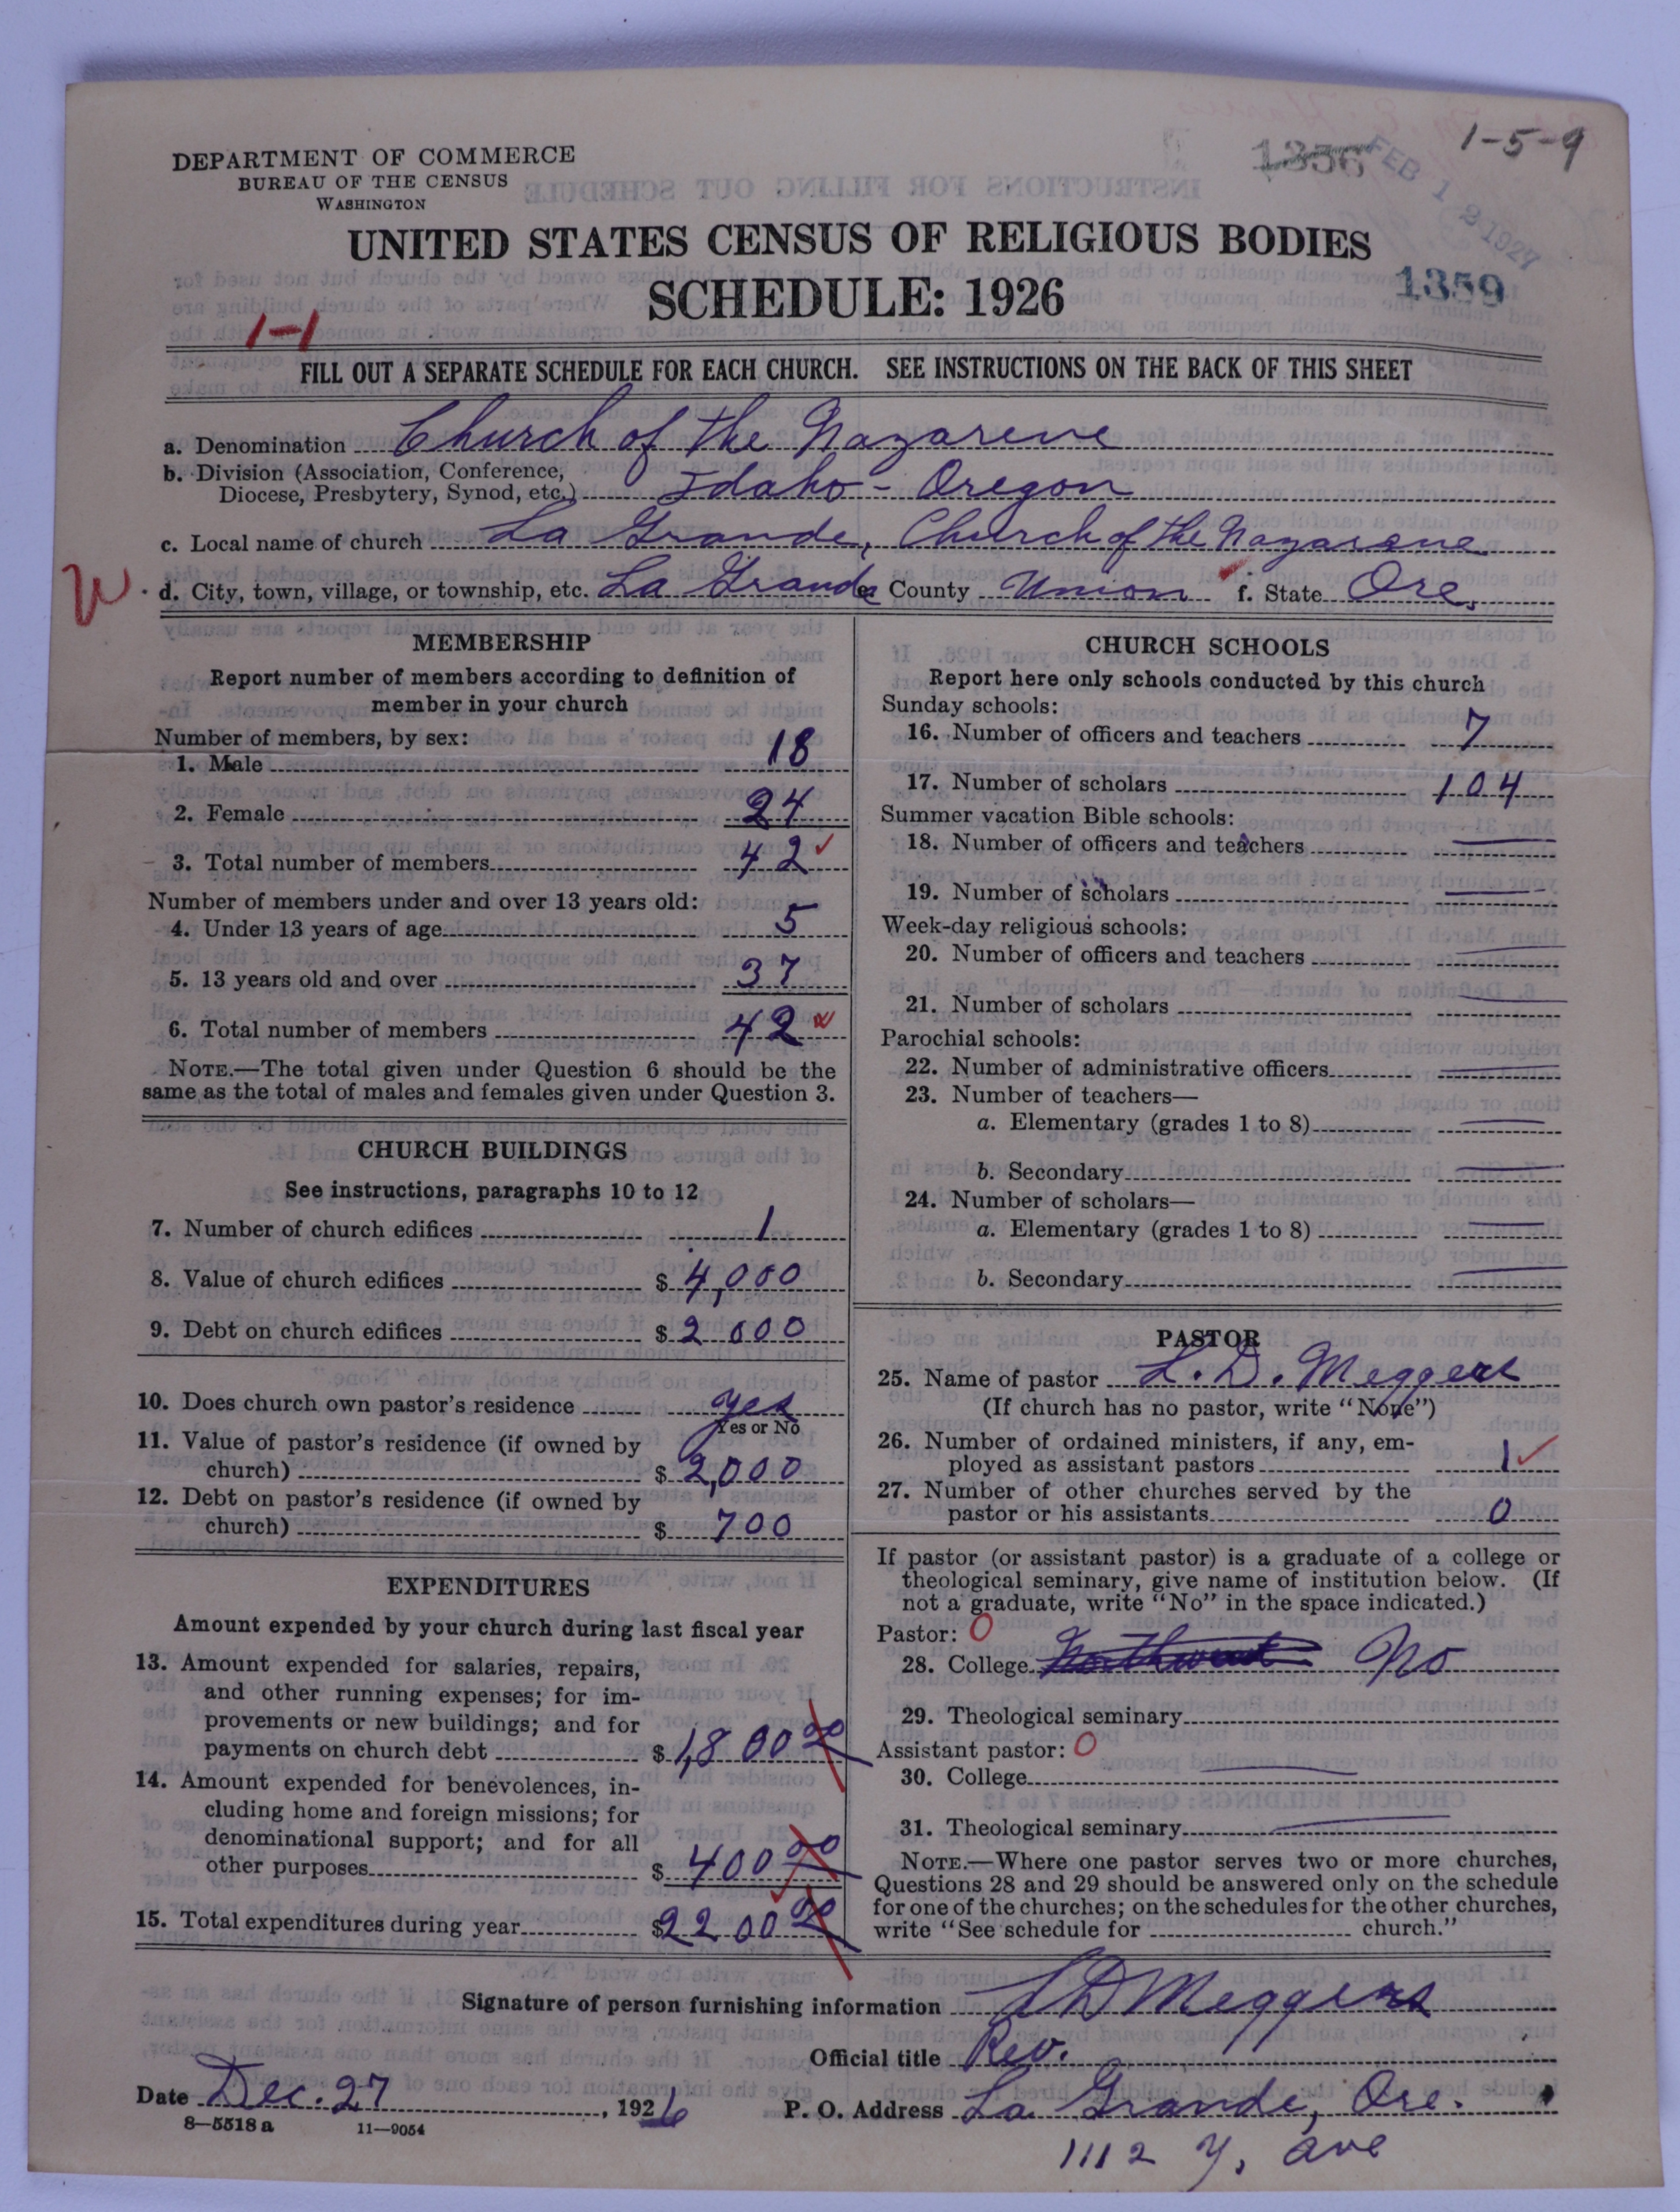 1-5-9
1356
FEB 12 1927
DEPARTMENT OF COMMERCE
BUREAU OF THE CENSUS
WASHINGTON
UNITED STATES CENSUS OF RELIGIOUS BODIES
SCHEDULE: 1926
1359
1-1
FILL OUT A SEPARATE SCHEDULE FOR EACH CHURCH. SEE INSTRUCTIONS ON THE BACK OF THIS SHEET
a. Denomination Church of the Nazarene
b. Division (Association, Conference,
Diocese, Presbytery, Synod, etc.) Idaho - Oregon
c. Local name of church La Grande, Church of the Nazarene
W d. City, town, village, or township, etc. La Grande e. County Union f. State Ore.
MEMBERSHIP
Report number of members according to definition of
member in your church
Number of members, by sex:
1. Male 18
2. Female 24
3. Total number of members 42
Number of members under and over 13 years old:
4. Under 13 years of age 5
5. 13 years old and over 37
6. Total number of members 42
NOTE.—The total given under Question 6 should be the
same as the total of males and females given under Question 3.
CHURCH BUILDINGS
See instructions, paragraphs 10 to 12
7. Number of church edifices 1
8. Value of church edifices $ 4,000
9. Debt on church edifices $ 2000
10. Does church own pastor's residence yes
Yes or No
11. Value of pastor's residence (if owned by
church) $ 2,000
12. Debt on pastor's residence (if owned by
church) $ 700
EXPENDITURES
Amount expended by your church during last fiscal year
13. Amount expended for salaries, repairs,
and other running expenses; for im-
provements or new buildings; and for
payments on church debt $ 1,800 00
14. Amount expended for benevolences, in-
cluding home and foreign missions; for
denominational support; and for all
other purposes $ 400 00
15. Total expenditures during year $ 2200 00
CHURCH SCHOOLS
Report here only schools conducted by this church
Sunday schools:
16. Number of officers and teachers 7
17. Number of scholars 104
Summer vacation Bible schools:
18. Number of officers and teachers
19. Number of scholars
Week-day religious schools:
20. Number of officers and teachers
21. Number of scholars
Parochial schools:
22. Number of administrative officers
23. Number of teachers—
a. Elementary (grades 1 to 8)
b. Secondary
24. Number of scholars—
a. Elementary (grades 1 to 8)
b. Secondary
PASTOR
25. Name of pastor L. D. Meggers
(If church has no pastor, write "None")
26. Number of ordained ministers, if any, em-
ployed as assistant pastors 1
27. Number of other churches served by the
pastor or his assistants 0
If pastor (or assistant pastor) is a graduate of a college or
theological seminary, give name of institution below. (If
not a graduate, write "No" in the space indicated.)
Pastor: 0
28. College Northwest No
29. Theological seminary
Assistant pastor: 0
30. College
31. Theological seminary
NOTE.—Where one pastor serves two or more churches,
Questions 28 and 29 should be answered only on the schedule
for one of the churches; on the schedules for the other churches,
write "See schedule for church."
Signature of person furnishing information L D Meggers
Official title Rev.
Date Dec. 27, 1926
P. O. Address La Grande, Ore.
8-5518 a 11-9054
1112 Y. Ave